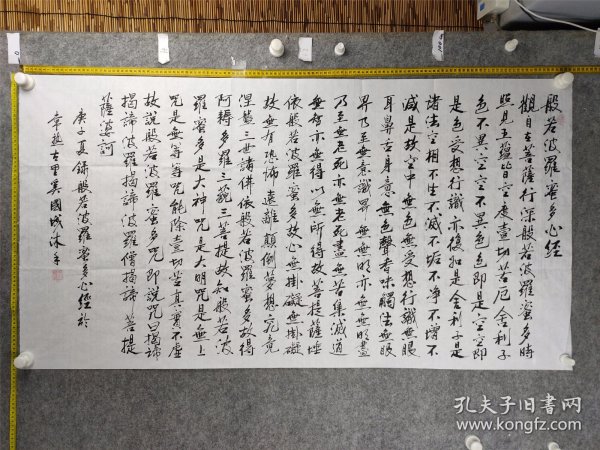 般若波羅蜜多心經
觀自在菩薩行深般若波羅蜜多時
照見五蘊皆空度一切苦厄舍利子
色不異空空不異色色即是空空即
是色受想行識亦復如是舍利子是
諸法空相不生不滅不垢不淨不增不
減是故空中無色無受想行識無眼
耳鼻舌身意無色聲香味觸法無眼
界乃至無意識界無無明亦無無明盡
乃至無老死亦無老死盡無苦集滅道
無智亦無得以無所得故菩提薩埵
依般若波羅蜜多故心無掛礙無掛礙
故無有恐怖遠離顛倒夢想究竟
涅槃三世諸佛依般若波羅蜜多故得
阿耨多羅三藐三菩提故知般若波
羅蜜多是大神咒是大明咒是無上
咒是無等等咒能除一切苦真實不虛
故說般若波羅蜜多咒即說咒曰揭諦
揭諦波羅揭諦波羅僧揭諦菩提
薩婆訶
庚子夏錄般若波羅蜜多心經於
古里吴國成沐手
孔夫子旧书网
www.kongfz.com